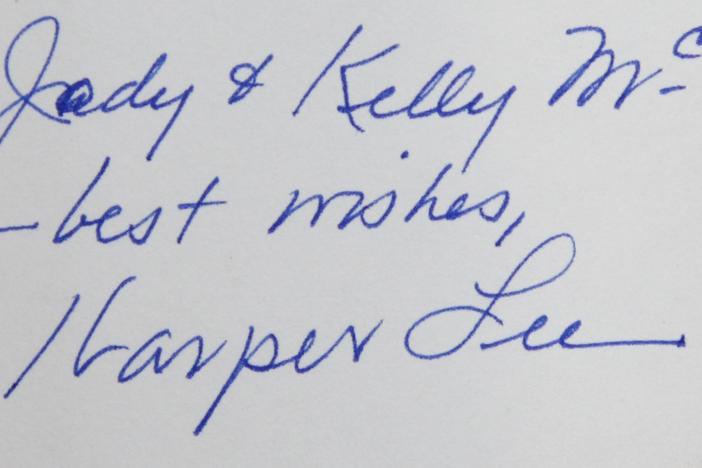 Jody & Kelly Mc
- best wishes,
Harper Lee